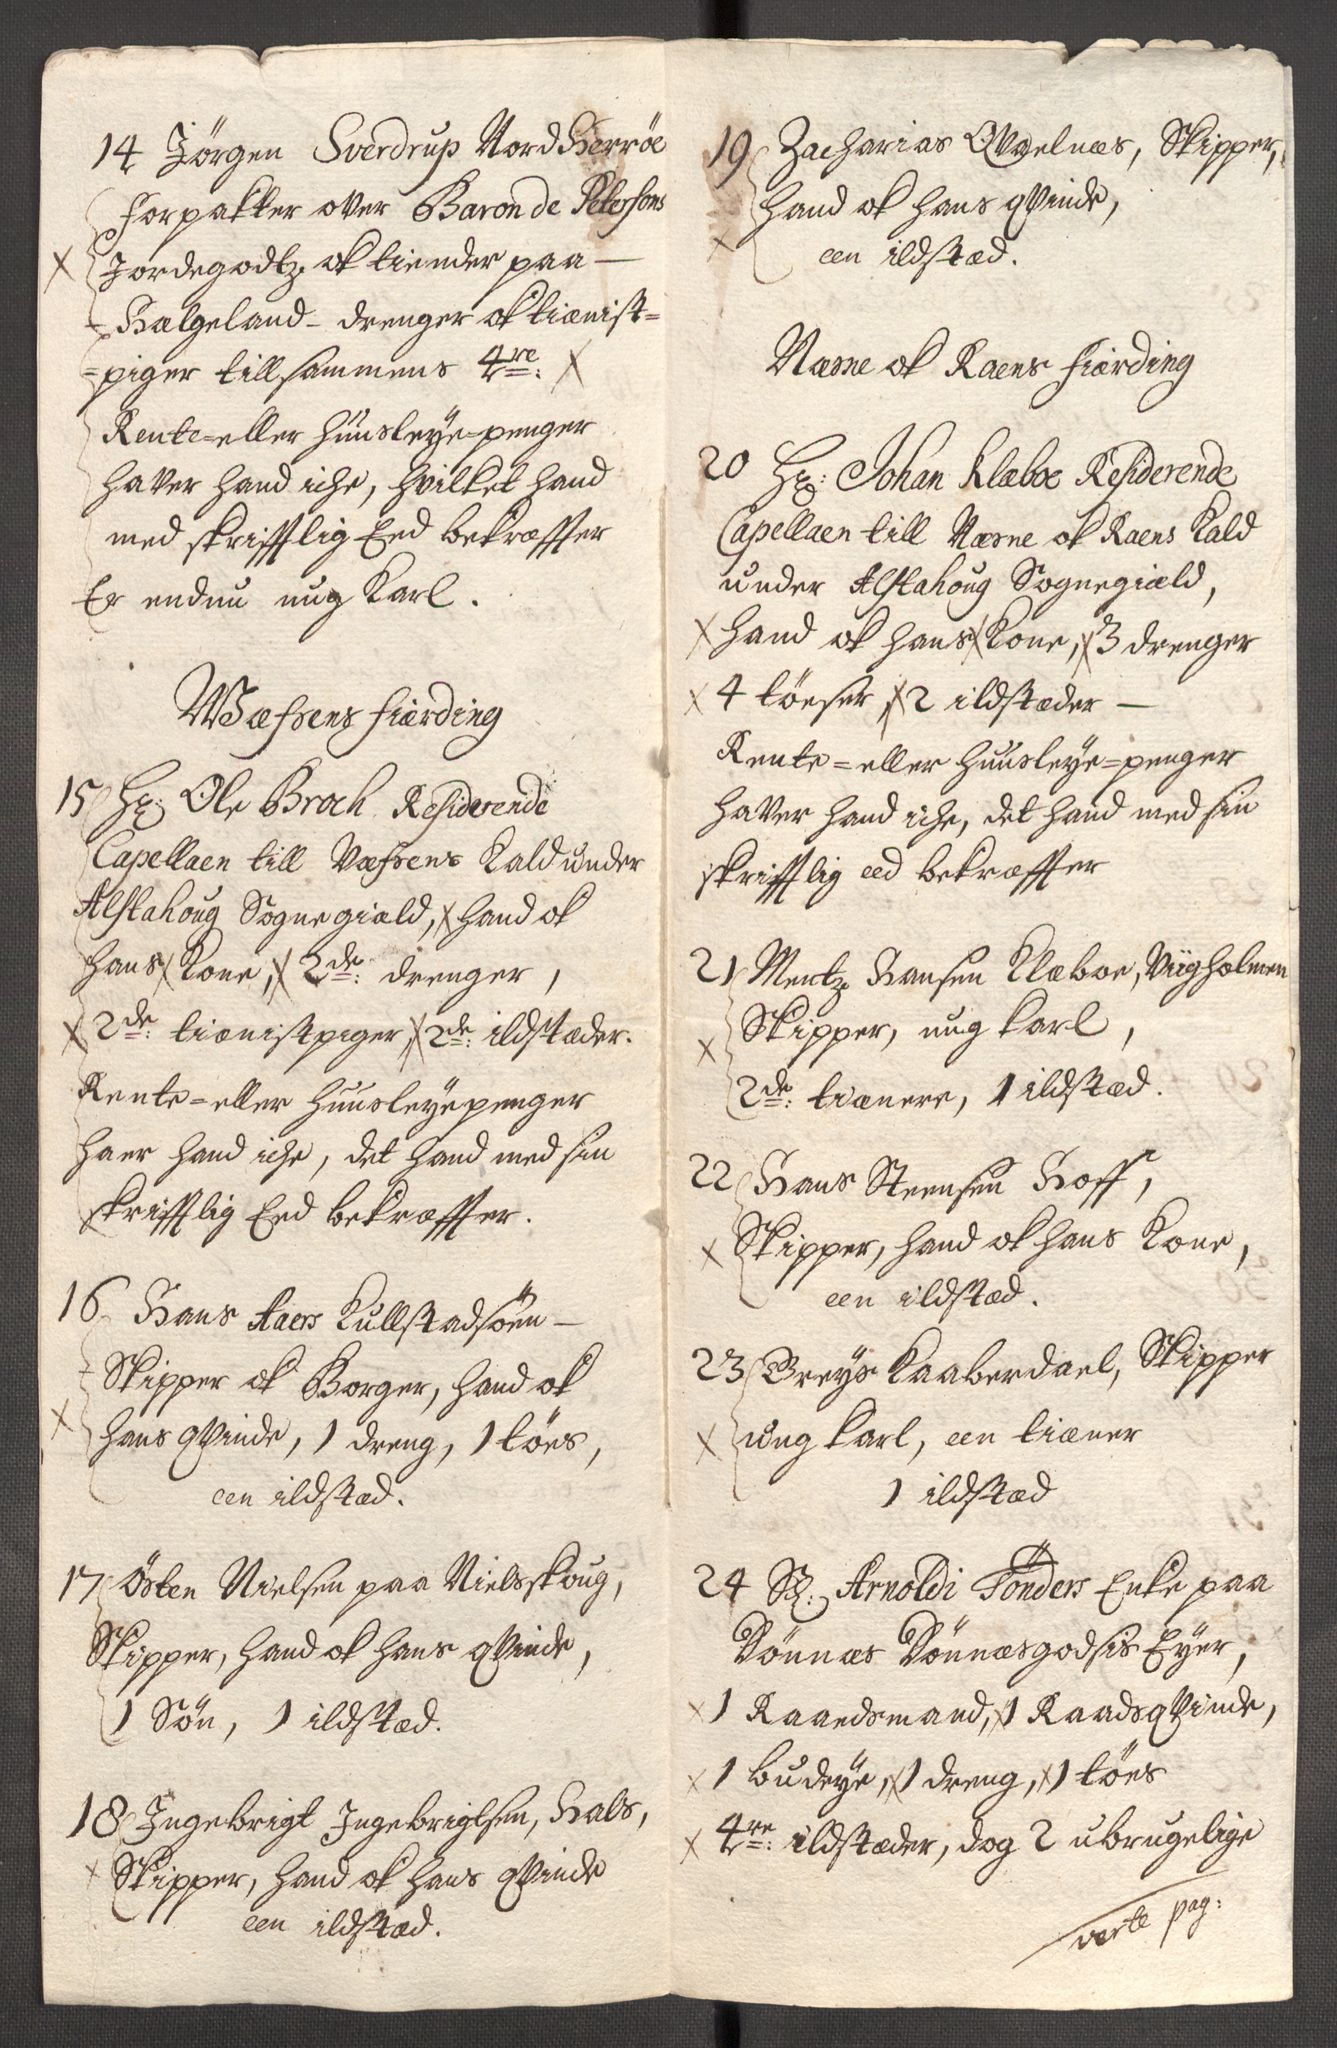 14 Jörgen Sverdrup Nord Herröe
Forpakter over Baron de Petersons
Jordegodtz ok tiender paa —
Halgeland - drenger ok tienist=
=piger till sammens 4re:
Rente=eller huusleye=penger
haver hand iche, hvilket hand
med skrifftlig Eed bekræffter
Er endnu ung karl.
Wæfsens fiærding
15 Hr: Ole Broch Residerende
Capellaen till Væfsens Kald under
Alstahoug Sognegiæld, hand ok
hans Kone, 2de: drenger,
2de: tienistpiger, 2de: ildstæder.
Rente=eller huusleyepenger
haer hand iche, det hand med sin
skrifftlig Eed bekræffter.
16 Hans Aars Kullstadsöen —
Skipper ok Borger, hand ok
hans qVinde, 1 dreng, 1 töes,
een ildstæd.
17 Östen Nielsen paa Nielsskoug,
Skipper, hand ok hans qVinde,
1 Sön, 1 ildstæd.
18 Ingebrigt Ingebrigtsen, Hals,
Skipper, hand ok hans qVinde
een ildstæd.
19 Zacharias QValnæs, Skipper,
hand ok hans qVinde,
een ildstæd.
Næsne ok Raens fiærding
20 Hr: Johan Klæboe Residerende
Capellaen till Næsne ok Raens Kald
under Alstahoug Sognegiæld,
hand ok hans Kone, 3 drenger
4 töeser, 2 ildstæder —
Rente=eller huusleye=penger
haver hand iche, det hand med sin
skrifftlig eed bekræffter
21 Mentz Hansen Klæboe, Viigholmen
Skipper, ung karl,
2de: tiænere, 1 ildstæd.
22 Hans Steensen Hoff,
Skipper, hand ok hans Kone,
een ildstæd.
23 Greys Kaaberdael, Skipper
ung karl, een tiæner
1 ildstæd
24 Sl. Arnoldi Tönders Enke paa
Dönnæs Dönnæsgodsis Eyer,
1 Raandsmand, 1 RaadsqVinde,
1 budeye, 1 dreng, 1 töes
4re: ildstæder, dog 2 ubrugelige
verte pag: